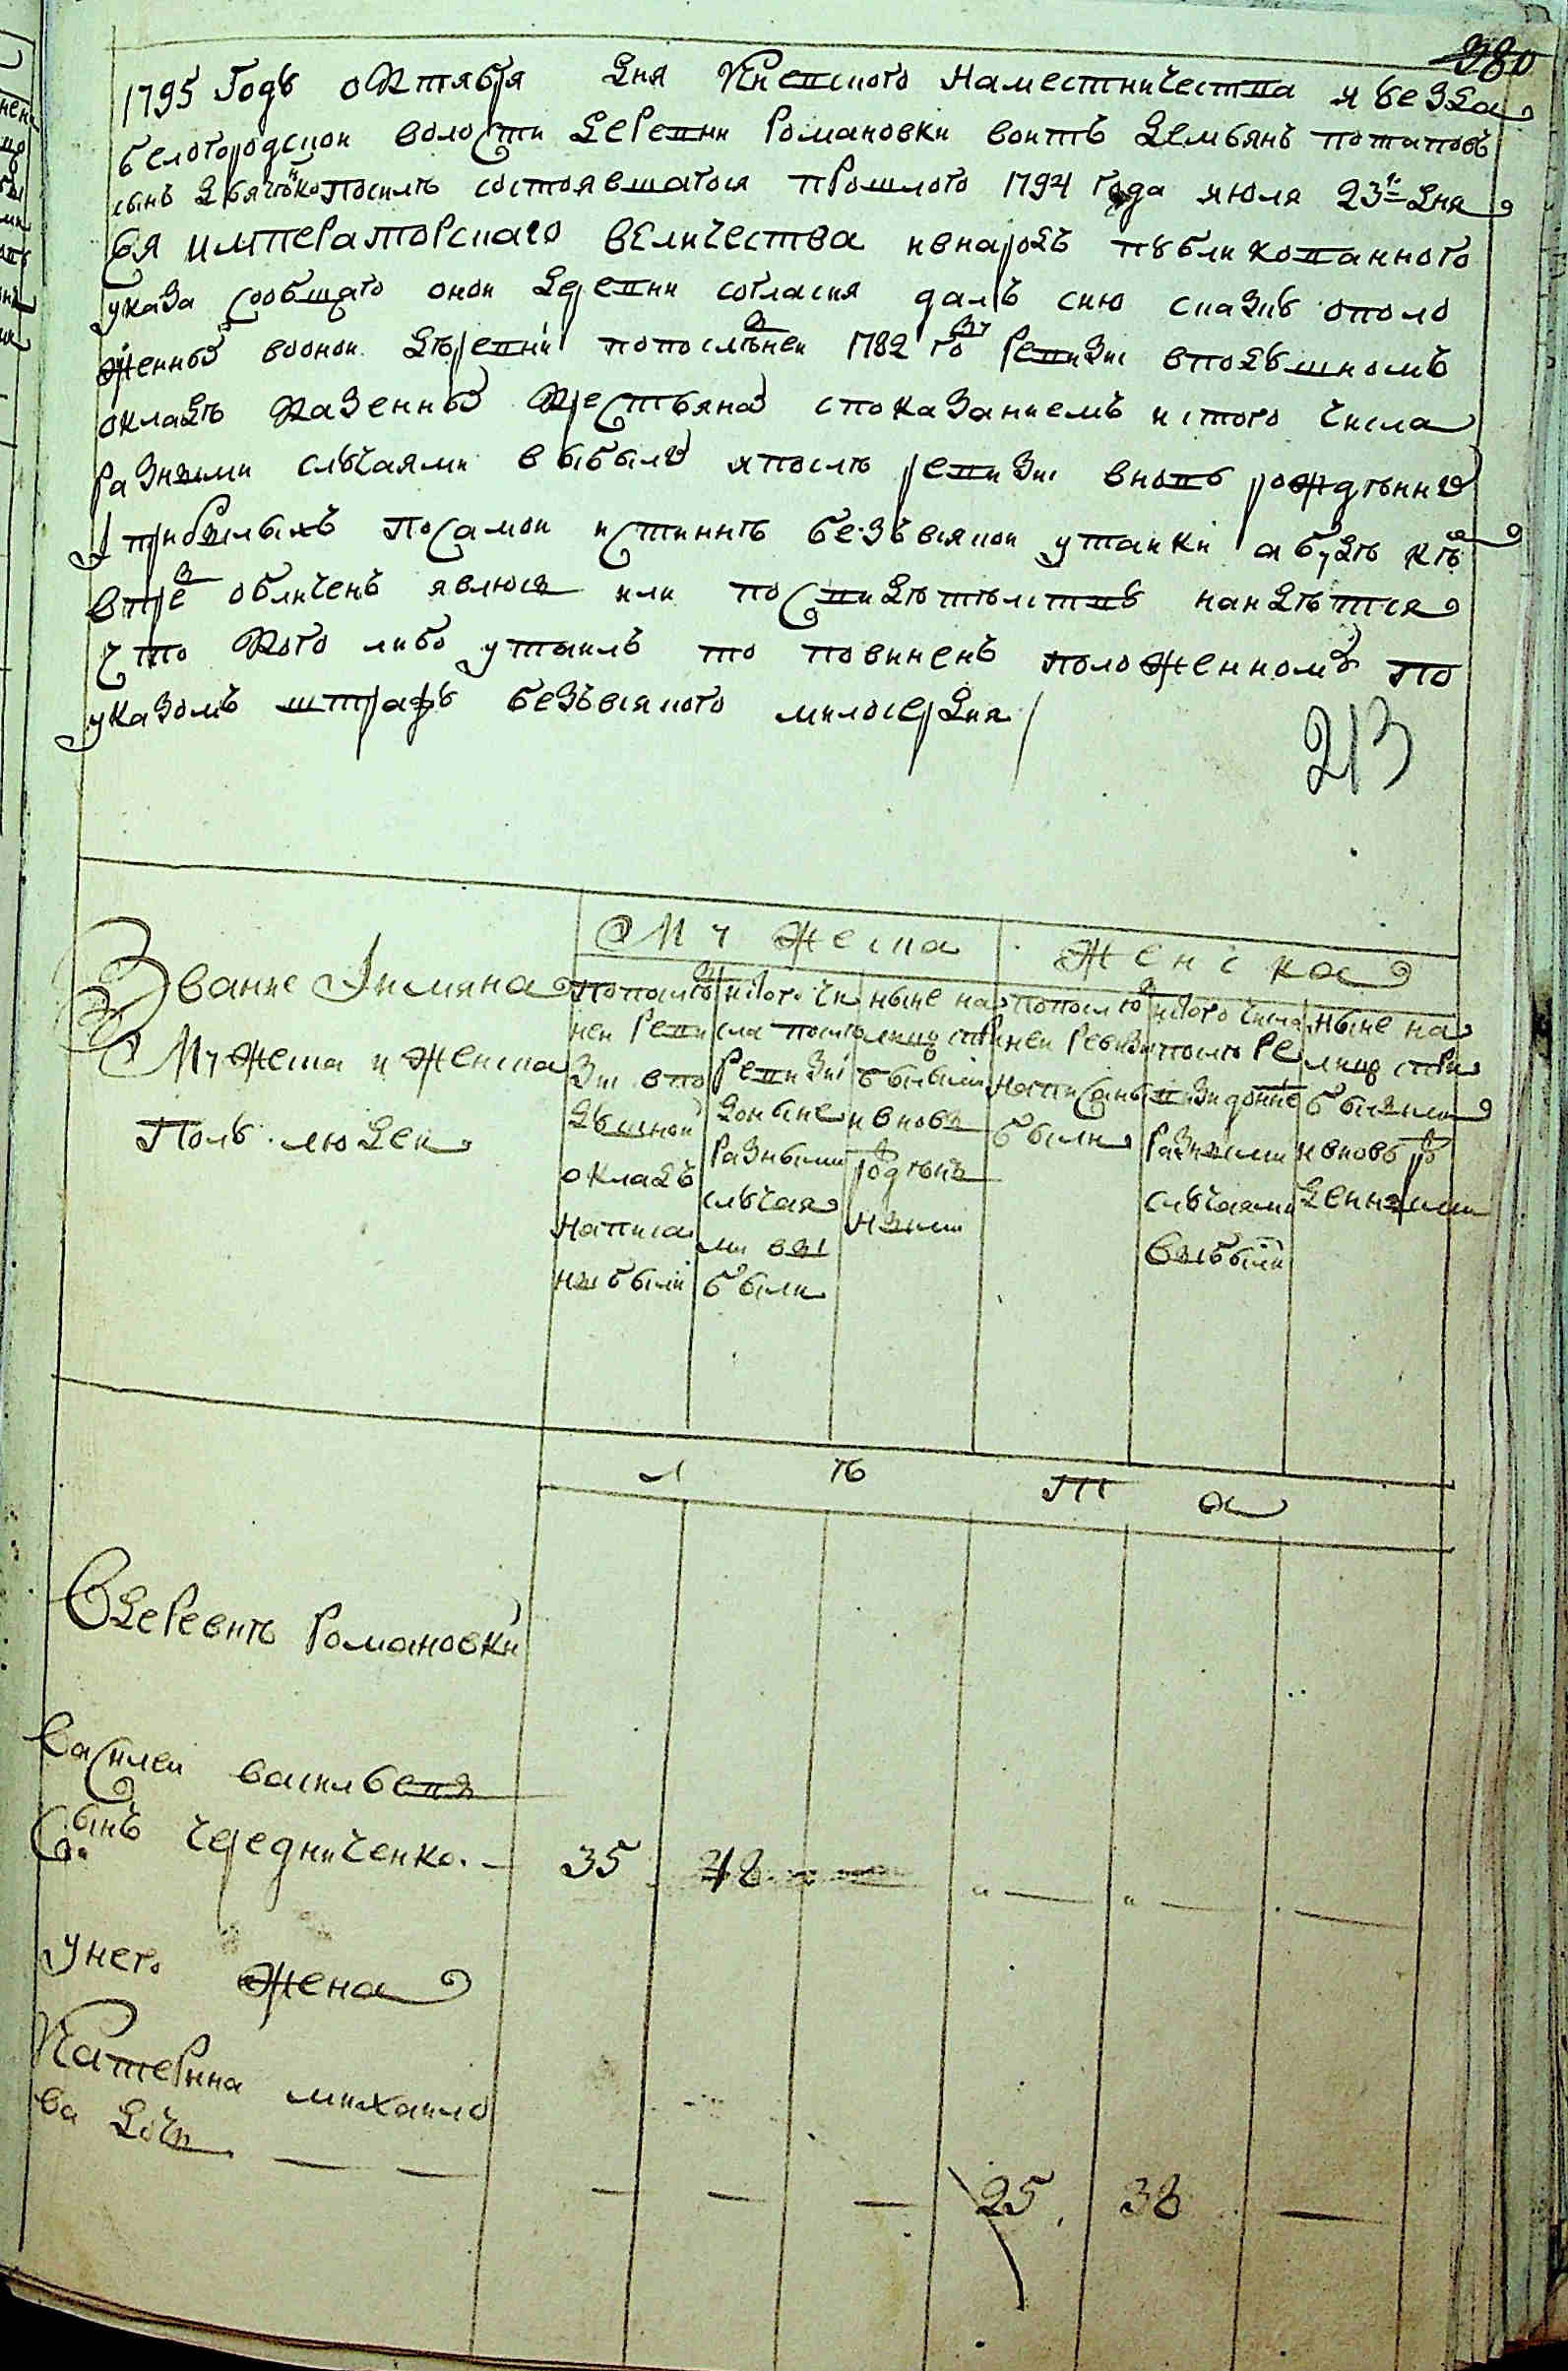 380
1795 Годȣ октября дня киевского наместничества и ȣезда
белогородской волости деревни Романовки воитъ демьянъ потаповъ
сынъ посилѣ состоявшагося прошлого 1794 года июля 23го дня
Ея императорскаго величества ивнародъ пȣбликованного
указа собщаго оной деревни согласия далъ сию сказкȣ ополо
женныхъ воонои дѣревни попослѣдней 1782го Ревизиі вподȣшномъ
окладѣ казенныхъ крестьянахъ спокази́ниемъ истого числа
Разными слȣчаями выбылыхъ ипослѣ ревизиі вновь рождѣнныхъ
I прибылыхъ посамои истиннѣ безъвсякои утаики абудѣ къ
впредъ обличенъ явлюсь или посвидѣтѣлствȣ наидѣтся
что кого либо утаилъ то повиненъ положенномȣ по
указомъ штрафȣ безъвсякого милосердия
213
Звание Iимяна
Мужеска и женска
Полȣ людеи
Мужеска
Женска
попослѣд
неи Реви
зиі впо
дȣшнои
окладъ
написа
ны были
истого чи
сла послѣ
Ревизиі
доныне
Разными
слȣчая
ми вы
были
ныне на
лицо спри
былыми
ивновь
рождѣн
ными
попослѣд
неи Ревизи
написаны
были
истого числа
послѣ Ре
визи доные
Разными
слȣчаями
выбыли
ныне на
лицо спри
былыми
ивновь рож
денными
Л ѣ т а
Вдеревнѣ Романовки
Василеи васильевъ
Сынъ чередниченко. 35 48
унего жена
Катерина михаило
ва дочь 25 38